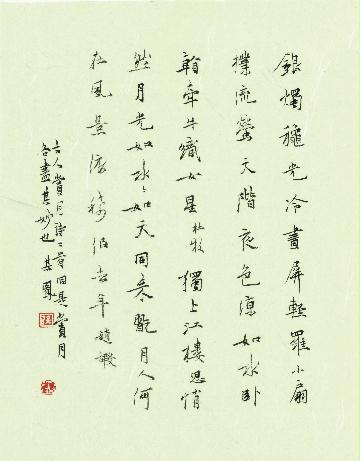 銀燭穐光冷畫屏輕羅小扇
撲流螢天階夜色凉如水卧
看牽牛織女星 杜牧 獨上江樓思悄
然月光如水〻如天同來翫月人何
在風景依稀似去年 趙嘏
古人賞月詩二首同是賞月
各盡其妙也